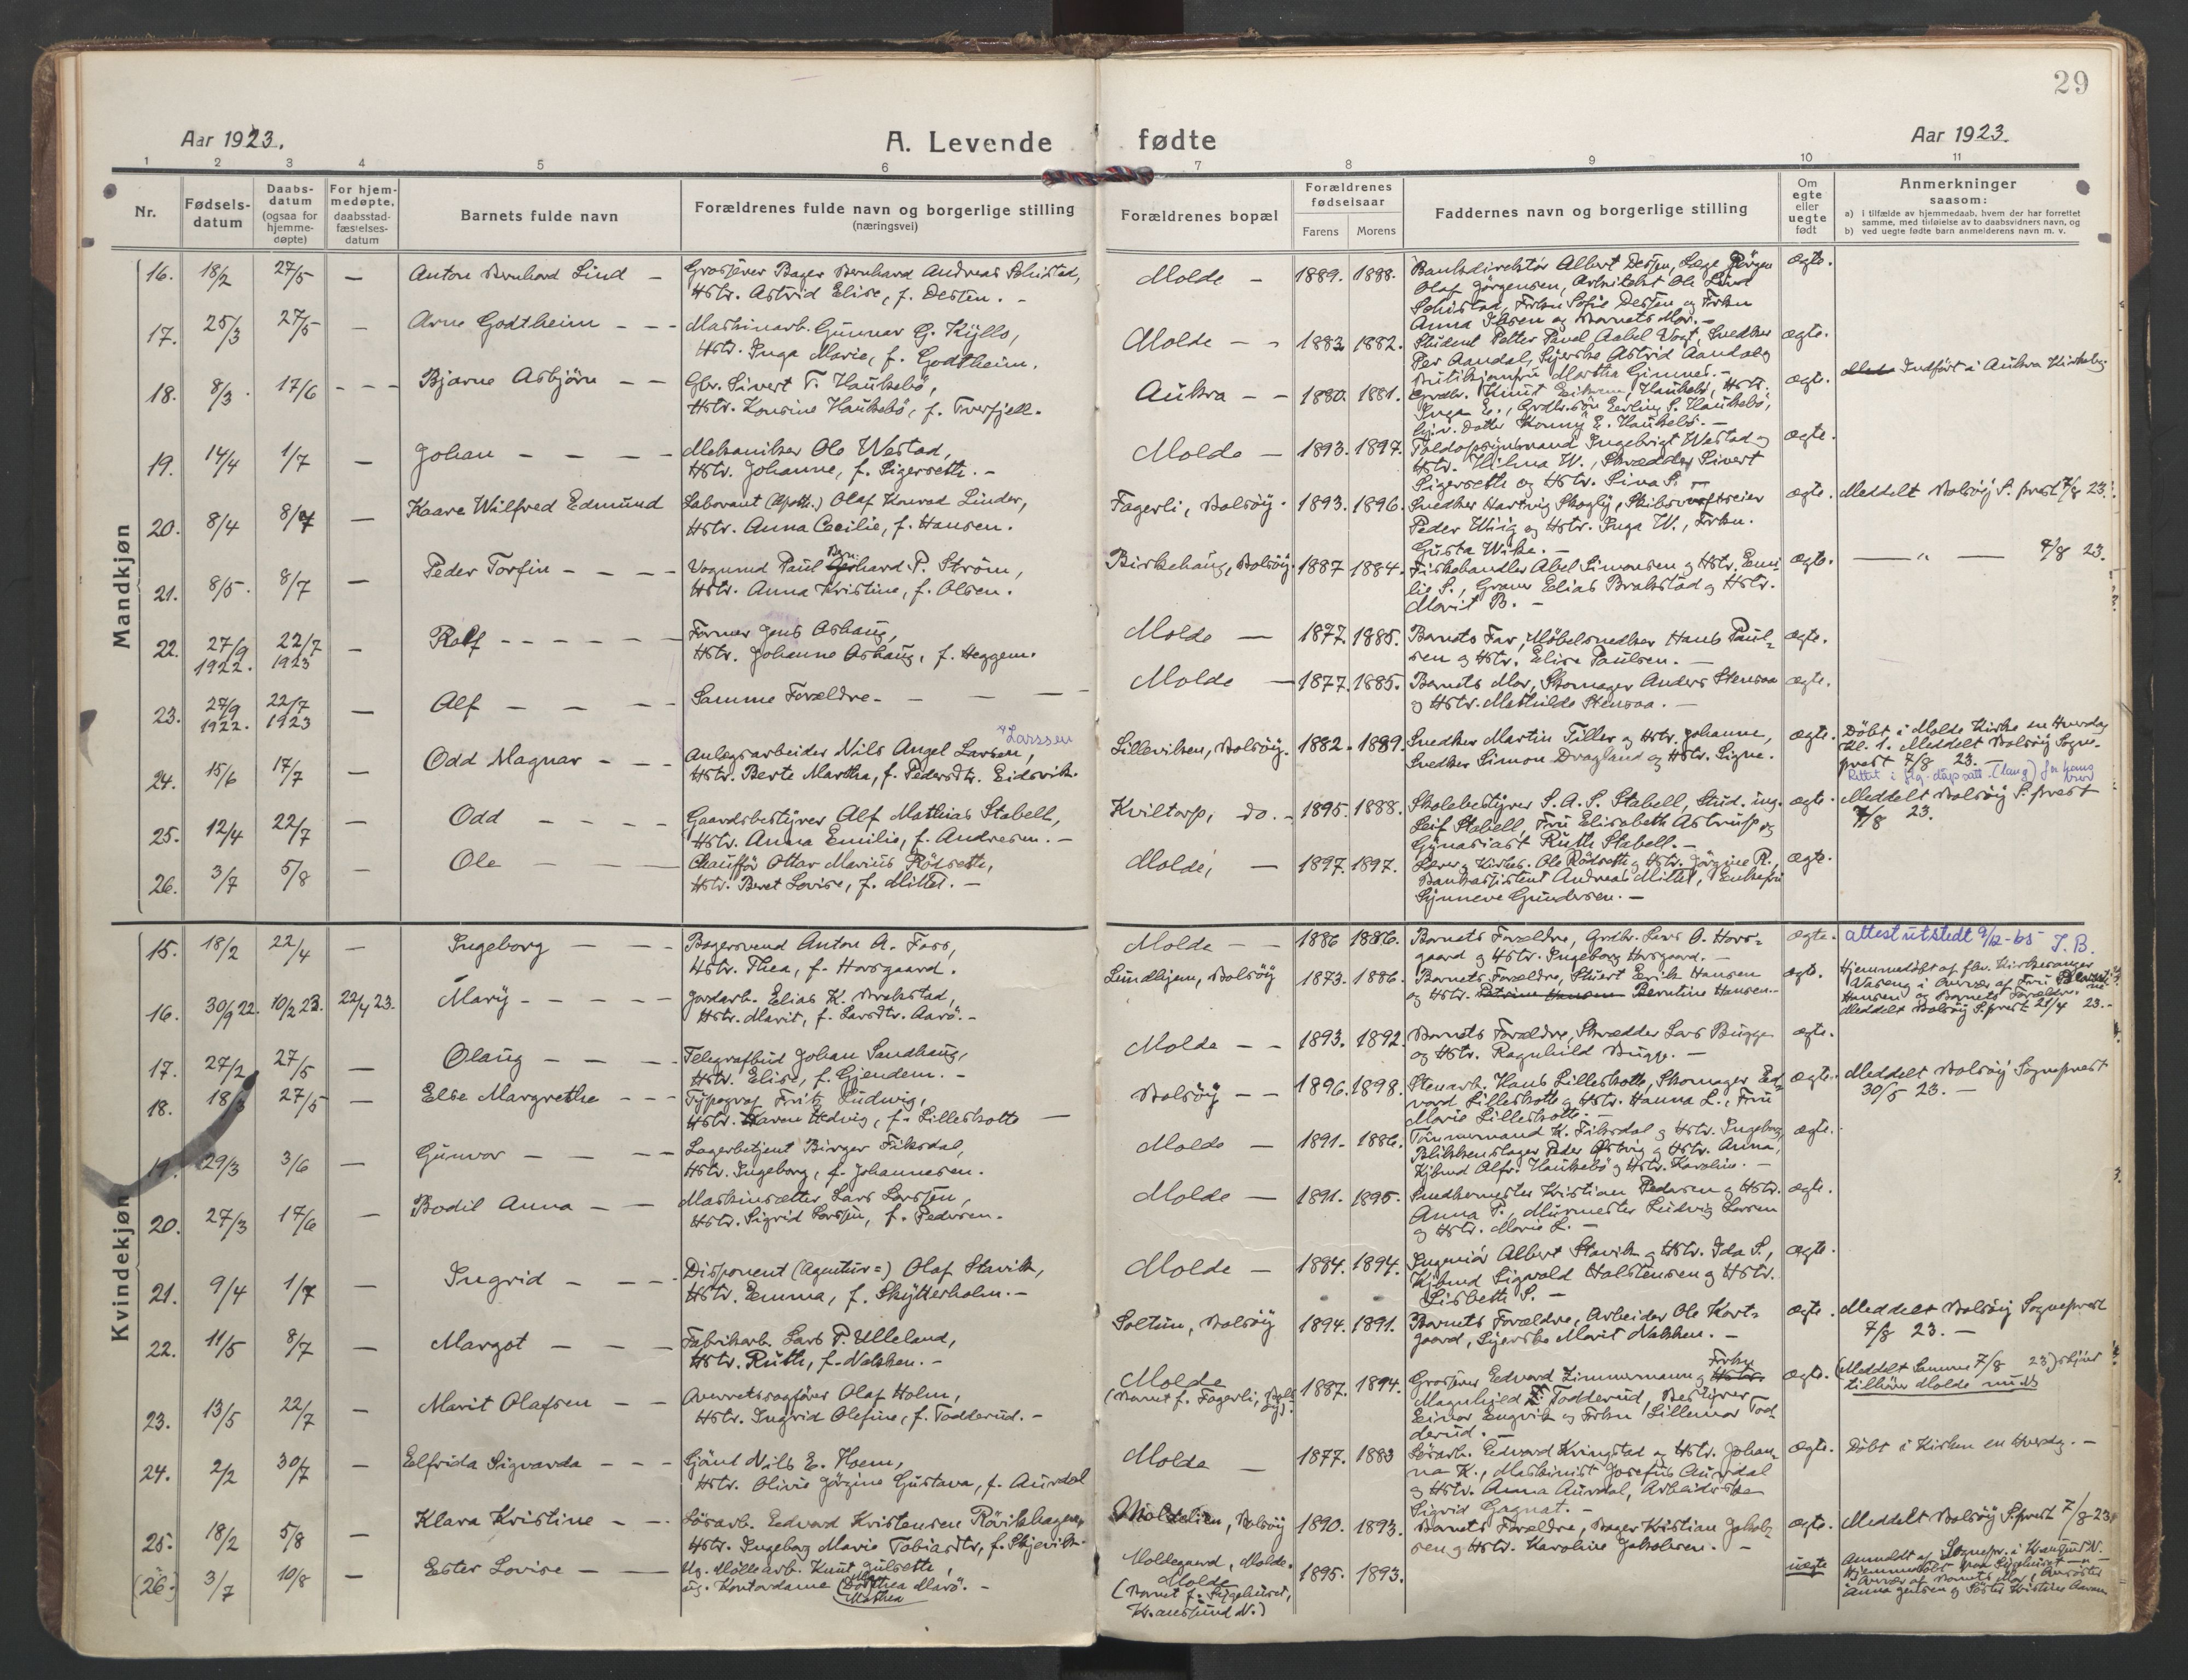 29
Aar 1923.
A. Levende fødte
Aar 1923.
1 2 3 4 5 6 7 8 9 10 11
Nr.
Fødsels-
datum
Daabs-
datum
(ogsaa for
hjemme-
døpte)
For hjem-
medøpte,
daabsstad-
fæstelses-
datum
Barnets fulde navn
Forældrenes fulde navn og borgerlige stilling
(næringsvei)
Forældrenes bopæl
Forældrenes
fødselsaar
Farens Morens
Faddernes navn og borgerlige stilling
Om
egte
eller
uegte
født
Anmerkninger
saasom:
a) i tilfælde av hjemmedaab, hvem der har forrettet
samme, med tilføielse av to daabsvidners navn, og
b) ved uegte fødte barn anmelderens navn m. v.
Mandkjøn
16. 18/2 27/5 — Anton Bernhard Lind —
Grosserer Bager Bernhard Andreas Schistad,
Hstr. Astrid Elise, f. Dessen. —
Molde — 1889. 1888.
Bankdirektör Albert Dessen, Læge Jörgen
Olaf Jörgensen, Arkitekt Ole Lind
Schistad, Frkn Sofie Dessen og Frkn
Anna Ibsen og Barnets Mor. —
ægte.
17. 25/3 27/5 — Arne Godtheim — — —
Maskinarb. Gunnar G. Kÿllo,
Hstr. Inga Marie, f. Godtheim.
Molde — — 1883. 1882.
Student Petter Paul Aabel Vogt, Snedker
Per Aandal, Sÿerske Astrid Aandal og
Butikjomfru Martha Gimnes. —
ægte.
18. 8/3. 17/6 — — — Bjarne Asbjörn — —
Gbr. Sivert T. Haukebö,
Hstr. Konsine Haukebö, f. Tverfjell.
Aukra — — 1880. 1881.
Grdbr. Knut Eikrem, Haukebö, Hstr.
Inga E., Grdbr.sön Erling S. Haukebö,
Gjv. Datter Konny E. Haukebö. —
ægte. Indfört i Aukra Kirkebog.
19. 14/4 1/7 — Johan — — — —
Mekaniker Ole Westad,
Hstr. Johanne, f. Sigerseth. —
Molde — 1893. 1897.
Toldopsynsmand Ingebrigt Westad og
Hstr. Hilma W., Skrædder Sivert
Sigerseth og Hstr. Sina S. —
ægte.
20. 8/4 8/7 — Kaare Wilfred Edmund
Laborant (Apoth.) Olaf Konrad Linder,
Hstr. Anna Cecilie, f. Hansen.
Fagerli, Bolsöÿ. 1893. 1896.
Snedker Hartvig Skoglÿ, Skibsværftseier
Peder Wiig og Hstr. Inga W., Frkn.
Gusta Wike. —
ægte. Meddelt Bolsöÿ S. prest 7/8 23.
21. 8/5. 8/7 — Peder Torfin — — — —
Vognmd Paul Bernhard P. Ström,
Hstr. Anna Kristine, f. Olsen.
Birkehaug, Bolsöÿ. 1887 1884.
Fiskehandler Abel Simonsen og Hstr. Emi-
lie S., Graver Elias Brakstad og Hstr.
Marit B. —
ægte. — " — 7/8 23.
22. 27/9 1922. 22/7 1923 — Rolf — — — — —
Former Jens Oshaug,
Hstr. Johanne Oshaug, f. Heggem.
Molde — 1877. 1885.
Barnets Far, Möbelsnedker Hans Paul-
sen og Hstr. Elise Paulsen. —
ægte.
23. 27/9 1922. 22/7 1923 — Alf — — — —
Samme Forældre — — — —
Molde — 1877. 1885.
Barnets Mor, Skomager Anders Stensaa
og Hstr. Mathilde Stensaa. —
ægte.
24. 15/6 17/7 — Odd Magnar — — —
Larssen
Anlægsarbeider Nils Angel Larsen,
Hstr. Berte Martha, f. Pedersdtr. Eidsvik.
Lilleviken, Bolsöÿ. 1882. 1889.
Snedker Martin Tiller og Hstr. Johanne,
Snedker Simon Dragland og Hstr. Signe.
ægte. Döbt i Molde Kirke en Hverdag
Kl. 1. Meddelt Bolsöÿ Sogne-
prest 7/8 23. —
25. 12/4 22/7 — Odd — — — —
Gaardsbestÿrer Alf Mathias Stabell,
Hstr. Anna Emilie, f. Andresen. —
Kviltorp, do. — 1895. 1888.
Skolebestÿrer S. A. S. Stabell, Stud. ing.
Leif Stabell, Fru Elisabeth Astrup og
Gÿmnasiast Ruth Stabell. —
ægte. Meddelt Bolsöÿ S. prest
7/8 23.
26. 3/7 5/8 — Ole — — — —
Chaufför Ottar Marius Rödseth,
Hstr. Beret Lovise, f. Mittet. —
Molde, — 1897. 1897.
Lærer og Kirkes. Ole Rödseth og Hstr. Jörgine R.,
Bankassistent Andreas Mittet, Enkefru
Sÿnneve Gundersen. —
ægte.
Kvindekjøn
15. 18/2 22/4 — Ingeborg — — —
Bagersvend Anton A. Foss,
Hstr. Thea, f. Horsgaard.
Molde — — 1886 1886.
Barnets Forældre, Grdbr. Lars O. Hors-
gaard og Hstr. Ingeborg Horsgaard. —
ægte. attest utstedt 9/12-65 T. B.
16. 30/9 22. 10/2 23. 22/4 23. Marÿ — — — — —
Jordarb. Elias K. Brakstad,
Hstr. Marit, f. Larsdtr. Aarö. —
Lundhjem, Bolsöÿ 1873. 1886.
Barnets Forældre, Skibert Erik Hansen
og Hstr. Petrine Hansen Berntine Hansen. —
ægte. Hjemmedöbt af fhv. Kirkesanger
Vaseng i Overvær af Fru Berntine
Hansen og Barnets Forældre.
Meddelt Bolsöÿ S. prest 21/4 23. —
17. 27/2 27/5 — Olaug — — — —
Telegrafbud Johan Sandhaug,
Hstr. Elise, f. Gjendem. —
Molde — — 1893. 1892.
Barnets Forældre, Skrædder Lars Bugge
og Hstr. Ragnhild Bugge. —
ægte.
18. 18/3 27/5 — Else Margrethe — — —
Tÿpograf Fritz Ludwig,
Hstr. Karen Hedvig, f. Lilleskotte —
Bolsöÿ — — 1896. 1898.
Stenarb. Hans Lilleskotte, Skomager Ed-
vard Lilleskotte og Hstr. Hanna L., Fru
Marie Lilleskotte. —
ægte. Meddelt Bolsöÿ Sogneprest
30/5 23. —
19. 29/3 3/6 — Gunvor — — — —
Lagerbetjent Birger Fiksdal,
Hstr. Ingeborg, f. Johannesen.
Molde — 1891. 1886.
Tömmermand K. Fiksdal og Hstr. Ingeborg,
Blikkenslager Peder Östvig og Hstr. Anna,
Kjöbmd Alfr. Haukebö og Hstr. Karoline. —
ægte.
20. 27/3 17/6 — Bodil Anna — —
Maskinsætter Lars Larssen,
Hstr. Sigrid Larssen, f. Pedersen.
Molde — 1891. 1895.
Snedkermester Kristian Pedersen og Hstr.
Anna P., Murmester Ludvig Larsen
og Hstr. Marie L. —
ægte.
21. 9/4 1/7 — Ingrid — — — —
Disponent (Agentur=) Olaf Stavik,
Hstr. Emma, f. Skÿtterholm. —
Molde — 1884. 1894.
Ingeniör Albert Stavik og Hstr. Ida S.,
Kjöbmd Sigvald Halstensen og Hstr.
Lisbeth S. —
ægte.
22. 11/5 8/7 — Margot — — — —
Fabrikarb. Lars P. Ulleland,
Hstr. Ruth, f. Nakken. —
Soltun, Bolsöÿ 1894. 1891.
Barnets Forældre, Arbeider Ole Kort-
gaard, Sÿerske Marit Nakken. —
ægte. Meddelt Bolsöÿ Sogneprest
7/8 23. —
23. 13/5 22/7 — Marit Olafsen — —
Overretssagförer Olaf Holm,
Hstr. Ingrid Olefine, f. Todderud. —
Molde
(Barnet f. Fagerli, Bols-
öÿ). 1887. 1894.
Frkn
Grosserer Edvard Zimmermann og Hstr.
Magnhild Z. Todderud, Bestÿrer
Einar Engvik og Frkn Lillemor Tod-
derud. —
ægte. (Meddelt Samme 7/8 23) skjönt
tilhörer Molde
24. 2/2 30/7 — Elfrida Sigvarda — — —
Sjömd Nils E. Hoem,
Hstr. Olivie Jörgine Gustava, f. Aurdal
Molde — 1877. 1883
Lösarb. Edvard Kringstad og Hstr. Johan-
na K., Maskinist Josefus Aurdal
og Hstr. Anna Aurdal, Arbeiderske
Sigrid Gagnat. —
ægte. Döbt i Kirken en Hverdg. —
25. 18/2 5/8 — Klara Kristine — —
Lösarb. Edvard Kristensen Rörvikhagen,
Hstr. Ingeborg Marie Tobiasdtr, f. Skjevik.
Moldelien, Bolsöÿ 1890. 1893.
Barnets Forældre, Bager Kristian Jakob-
sen og Hstr. Karoline Jakobsen. —
ægte. Meddelt Bolsöÿ S.prest 7/8 23
(26.) 3/7 10/8 — Ester Lovise — —
Ug. Möllearb. Knut Gulseth,
ug. Kontordame (Dorthea Aarö. —
Mathea
Moldegaard, Molde.
Molde
(Barnet f. Sÿgehuset,
Kr.ansund N.) 1895. 1893.
uægte Anmeldt af Sognepr. i Kr.ansund N.
Hjemmedöbt paa Sÿgehuset
Overvær af Barnets Mor,